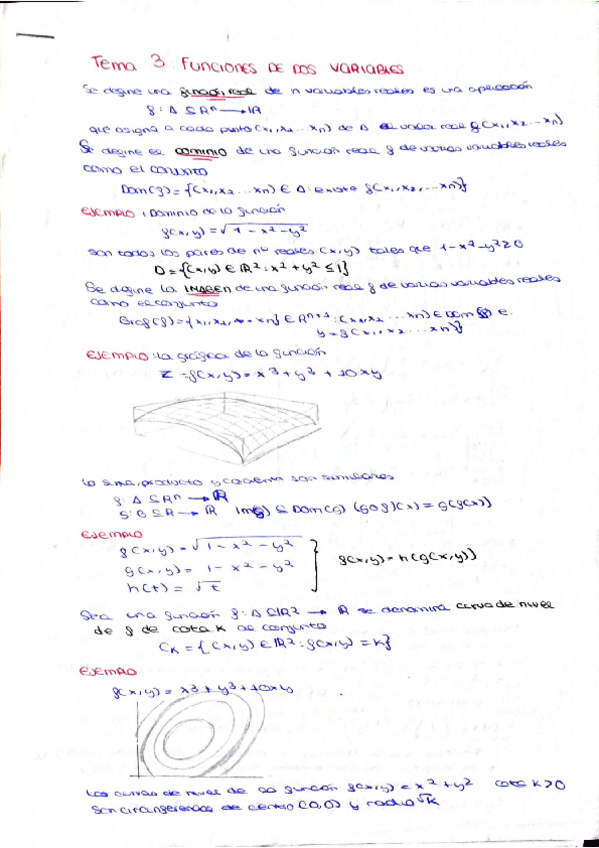 Tema 3: FUNCIONES DE DOS VARIABLES
Se define una función real de n variables reales es una aplicación
f: A ⊆ Rⁿ → IR
que asigna a cada punto (x₁, x₂ ... xn) de A el valor real f(x₁, x₂ ... xn)
Se define el DOMINIO de una función real f de varias variables reales
como el conjunto
Dom(f) = {(x₁, x₂ ... xn) ∈ A : existe f(x₁, x₂, ... xn)}
EJEMPLO: Dominio de la función
f(x,y) = √1 - x² - y²
son todos los pares de nº reales (x,y) tales que 1 - x² - y² ≥ 0
D = {(x,y) ∈ IR² : x² + y² ≤ 1}
Se define la IMAGEN de una función real f de varias variables reales
como el conjunto
(f) = {x₁, x₂, ... xn} ∈ Rⁿ⁺¹ : (x₁, x₂ ... xn) ∈ Dom (f) e
y = f(x₁, x₂ ... xn)}
EJEMPLO: la gráfica de la función
Z = f(x,y) = x³ + y³ + 10xy
La suma, producto y cociente son similares
f: A ⊆ Rⁿ → IR
g: B ⊆ R → IR Im(f) ⊆ Dom(g) (g o f)(x) = g(f(x))
EJEMPLO
f(x,y) = √1 - x² - y²
g(x,y) = 1 - x² - y²
h(t) = √t
f(x,y) = h(g(x,y))
Sea una función f: A ⊆ IR² → IR se denomina curva de nivel
de f de cota K al conjunto
CK = {(x,y) ∈ IR² : f(x,y) = K}
EJEMPLO
f(x,y) = x³ + y³ + 10xy
Las curvas de nivel de la función f(x,y) = x² + y² cota K>0
son circunferencias de centro (0,0) y radio √K